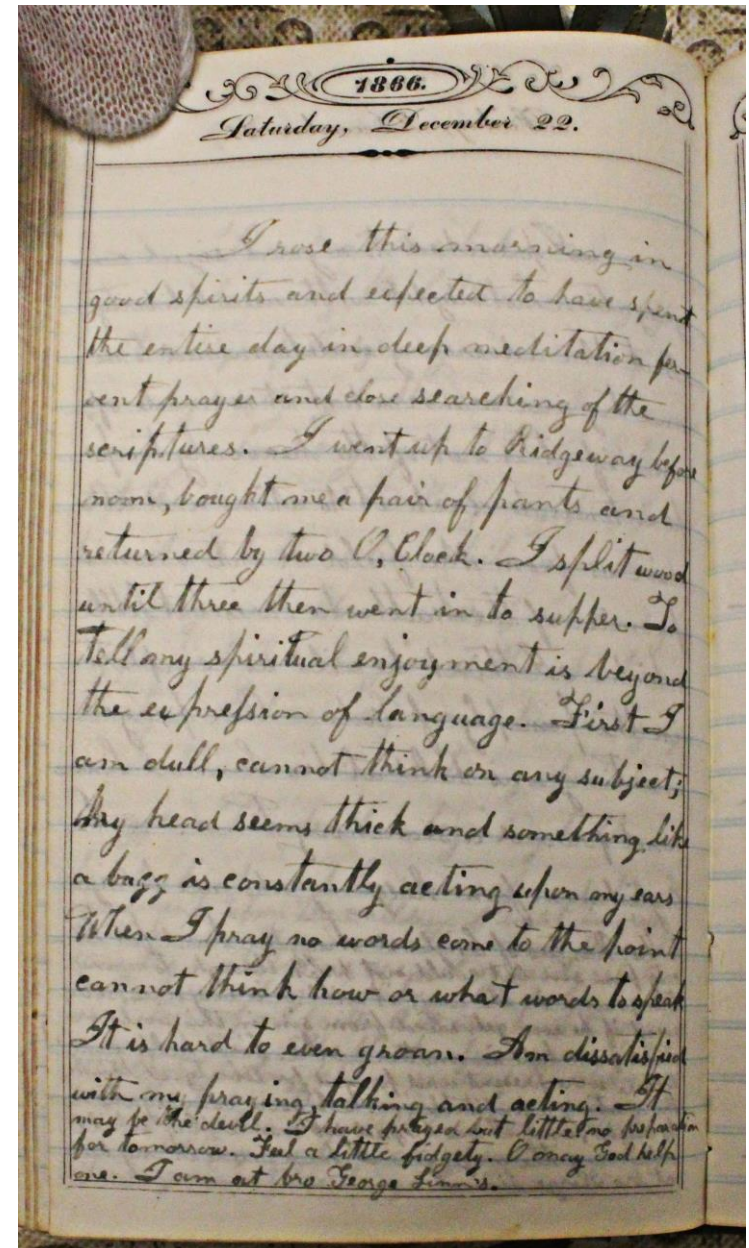 1866.
Saturday, December 22.
I rose this morning in
good spirits and expected to have spent
the entire day in deep meditation fer-
vent prayer and close searching of the
scriptures. I went up to Ridgeway before
noon, bought me a pair of pants and
returned by two O, Clock. I split wood
until three then went in to supper. To
tell my spiritual enjoyment is beyond
the expression of language. First I
am dull, cannot think on any subject;
My head seems thick and something like
a buzz is constantly acting upon my ears
When I pray no words come to the point
cannot think how or what words to speak
It is hard to even groan. Am dissatisfied
with my praying, talking and acting. It
may be the devil. I have prayed but little no preparation
for tomorrow. Feel a little fidgety. O may God help
me. I am at bro George Linn's.